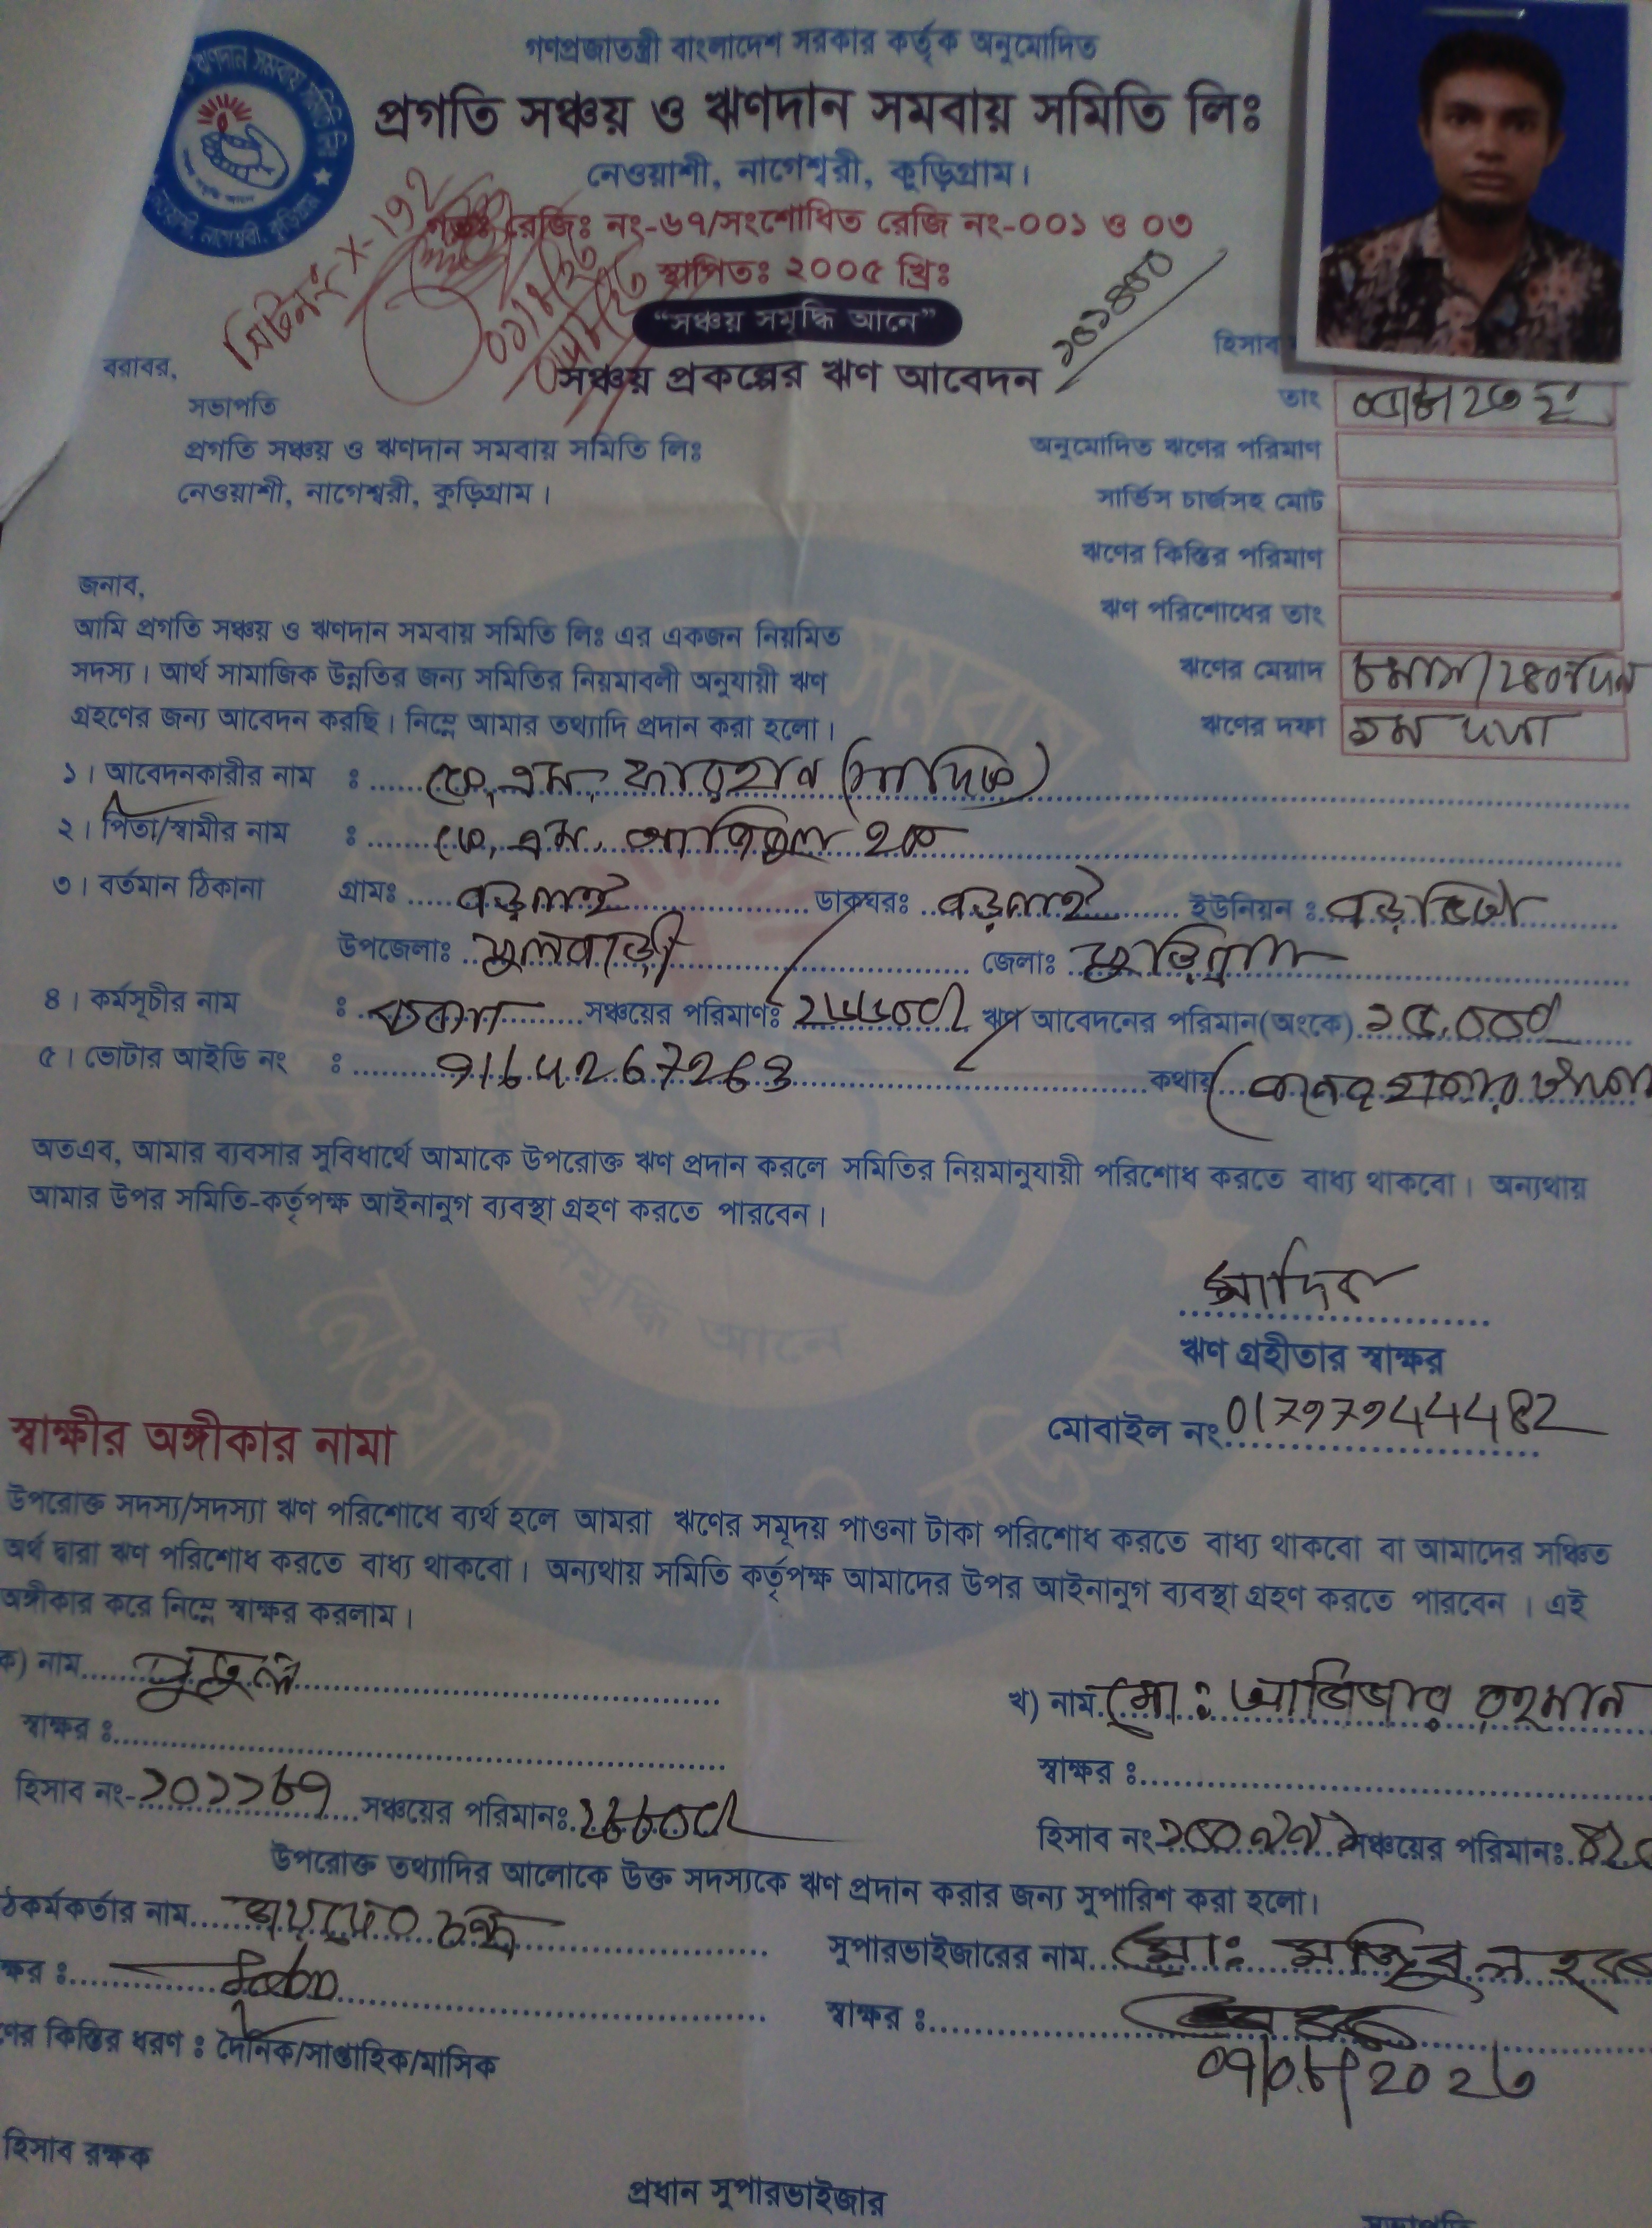 গণপ্রজাতন্ত্রী বাংলাদেশ সরকার কর্তৃক অনুমোদিত
প্রগতি সঞ্চয় ও ঋণদান সমবায় সমিতি লিঃ
নেওয়াশী, নাগেশ্বরী, কুড়িগ্রাম।
রেজিঃ নং-৬৭/সংশোধিত রেজি নং-০০১ ও ০৩
স্থাপিতঃ ২০০৫ খ্রিঃ
“সঞ্চয় সমৃদ্ধি আনে”
সঞ্চয় প্রকল্পের ঋণ আবেদন
হিসাব
বরাবর,
সভাপতি
প্রগতি সঞ্চয় ও ঋণদান সমবায় সমিতি লিঃ
নেওয়াশী, নাগেশ্বরী, কুড়িগ্রাম।
তাং
অনুমোদিত ঋণের পরিমাণ
সার্ভিস চার্জসহ মোট
ঋণের কিস্তির পরিমাণ
ঋণ পরিশোধের তাং
ঋণের মেয়াদ ৮মাস/২৪০দিন
ঋণের দফা ১ম দফা
জনাব,
আমি প্রগতি সঞ্চয় ও ঋণদান সমবায় সমিতি লিঃ এর একজন নিয়মিত
সদস্য। আর্থ সামাজিক উন্নতির জন্য সমিতির নিয়মাবলী অনুযায়ী ঋণ
গ্রহণের জন্য আবেদন করছি। নিম্নে আমার তথ্যাদি প্রদান করা হলো।
১। আবেদনকারীর নাম : কে, এম, ফারহান (সাদিক)
২। পিতা/স্বামীর নাম : কে, এম, আজিজুল হক
৩। বর্তমান ঠিকানা গ্রামঃ বড়লই ডাকঘরঃ বড়লই ইউনিয়ন : বড়ভিটা
উপজেলাঃ ফুলবাড়ী জেলাঃ কুড়িগ্রাম
৪। কর্মসূচীর নাম : সঞ্চয়ের পরিমাণঃ ঋণ আবেদনের পরিমান(অংকে) ১৫,০০০/
৫। ভোটার আইডি নং : কথায় (পনের হাজার টাকা
অতএব, আমার ব্যবসার সুবিধার্থে আমাকে উপরোক্ত ঋণ প্রদান করলে সমিতির নিয়মানুযায়ী পরিশোধ করতে বাধ্য থাকবো। অন্যথায়
আমার উপর সমিতি-কর্তৃপক্ষ আইনানুগ ব্যবস্থা গ্রহণ করতে পারবেন।
সাদিক
ঋণ গ্রহীতার স্বাক্ষর
মোবাইল নং 01797944482
স্বাক্ষীর অঙ্গীকার নামা
উপরোক্ত সদস্য/সদস্যা ঋণ পরিশোধে ব্যর্থ হলে আমরা ঋণের সমূদয় পাওনা টাকা পরিশোধ করতে বাধ্য থাকবো বা আমাদের সঞ্চিত
অর্থ দ্বারা ঋণ পরিশোধ করতে বাধ্য থাকবো। অন্যথায় সমিতি কর্তৃপক্ষ আমাদের উপর আইনানুগ ব্যবস্থা গ্রহণ করতে পারবেন। এই
অঙ্গীকার করে নিম্নে স্বাক্ষর করলাম।
ক) নাম পুতুল
খ) নাম মো: আজিজার রহমান
স্বাক্ষর :
স্বাক্ষর :
হিসাব নং- ১০১১৮৭ সঞ্চয়ের পরিমানঃ
হিসাব নং সঞ্চয়ের পরিমানঃ
উপরোক্ত তথ্যাদির আলোকে উক্ত সদস্যকে ঋণ প্রদান করার জন্য সুপারিশ করা হলো।
ঠকর্মকর্তার নাম
সুপারভাইজারের নাম মো: মজিবুল হক
ক্ষর :
স্বাক্ষর :
ণের কিস্তির ধরণ : দৈনিক/সাপ্তাহিক/মাসিক
হিসাব রক্ষক
প্রধান সুপারভাইজার
সভাপতি